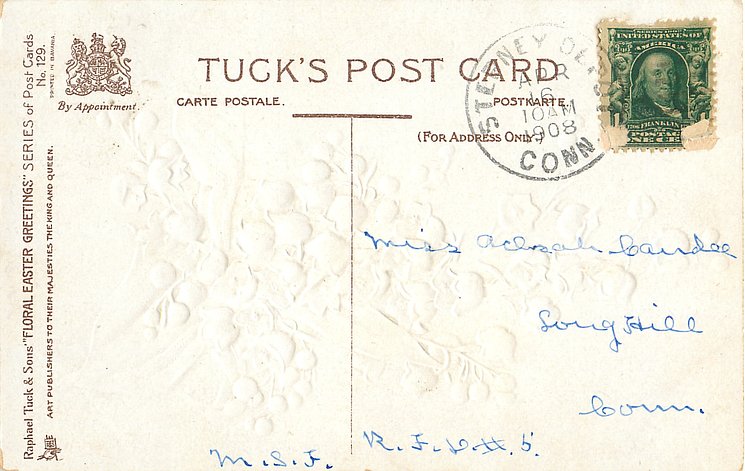 Raphael Tuck & Sons' "FLORAL EASTER GREETINGS" SERIES of Post Cards
No. 129.
PRINTED IN BAVARIA
ART PUBLISHERS TO THEIR MAJESTIES THE KING AND QUEEN.
By Appointment.
TUCK'S POST CARD
CARTE POSTALE.
POSTKARTE.
(FOR ADDRESS ONLY.)
STEPNEY DEPOT
APR
16
10AM
1908
CONN
SERIES 1902
UNITED STATES OF
AMERICA
FRANKLIN
POSTAGE
Miss Achsah Candee
Long Hill
Conn.
R.F.D. # 5.
M.S.F.